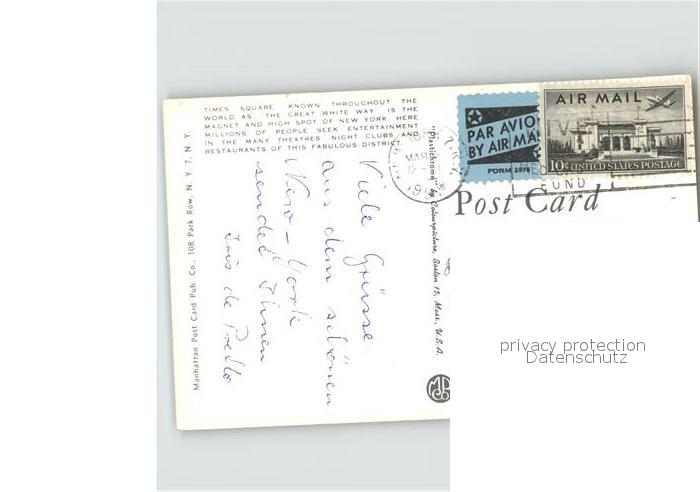 TIMES SQUARE KNOWN THROUGHOUT THE
WORLD AS THE GREAT WHITE WAY IS THE
MAGNET AND HIGH SPOT OF NEW YORK HERE
MILLIONS OF PEOPLE SEEK ENTERTAINMENT
IN THE MANY THEATRES NIGHT CLUBS AND
RESTAURANTS OF THIS FABULOUS DISTRICT.
Manhattan Post Card Pub. Co., 108 Park Row, N. Y 7, N. Y.
Viele Grüsse
aus dem schönen
New-York
sendet Ihnen
"Plastichrome" by Colourpicture, Boston 15, Mass., U.S.A.
PAR AVION
BY AIR MAIL
FORM 2978
AIR MAIL
10¢ UNITED STATES POSTAGE
MAR
12
FUND
Post Card
privacy protection
Datenschutz